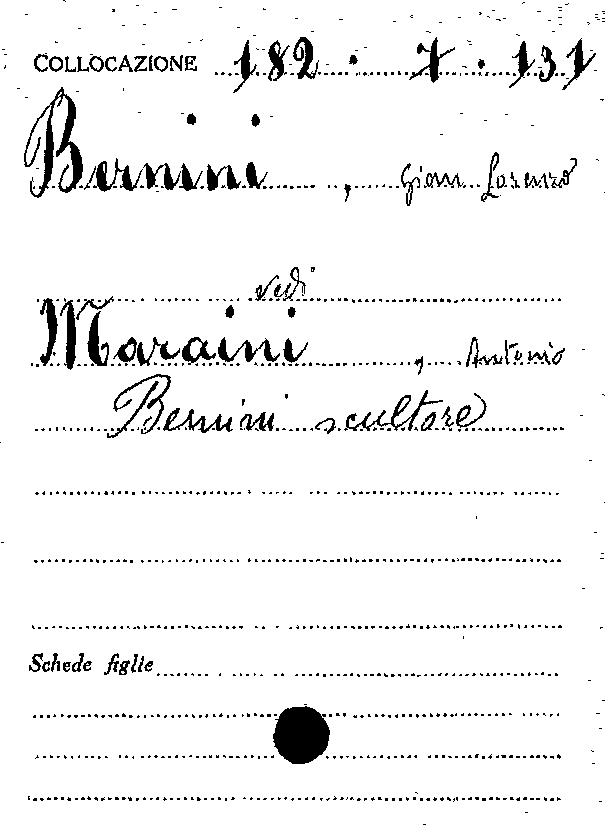 COLLOCAZIONE 182 · 7 · 131
Bernini, Gian Lorenzo
vedi
Maraini, Antonio
Bernini scultore
Schede figlie